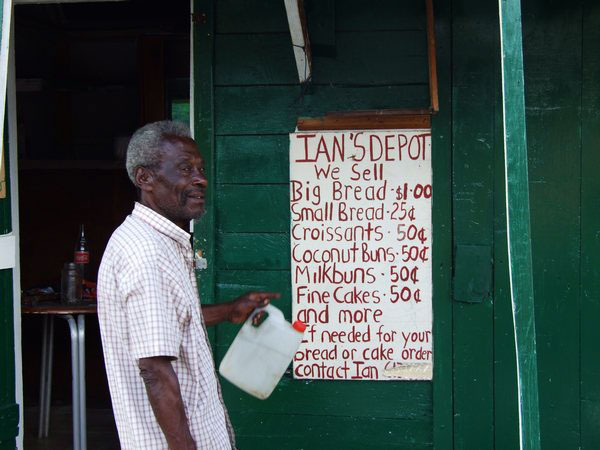 IAN'S DEPOT
We Sell
Big Bread - $1.00
Small Bread - 25¢
Croissants - 50¢
Coconut Buns - 50¢
Milkbuns - 50¢
Fine Cakes - 50¢
and more
If needed for your
bread or cake order
contact Ian